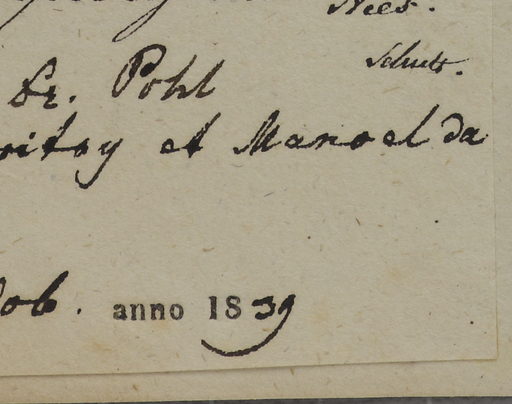 Nees.
Schult.
Dr. Pohl
ritay et Manoel da
ob. anno 1839